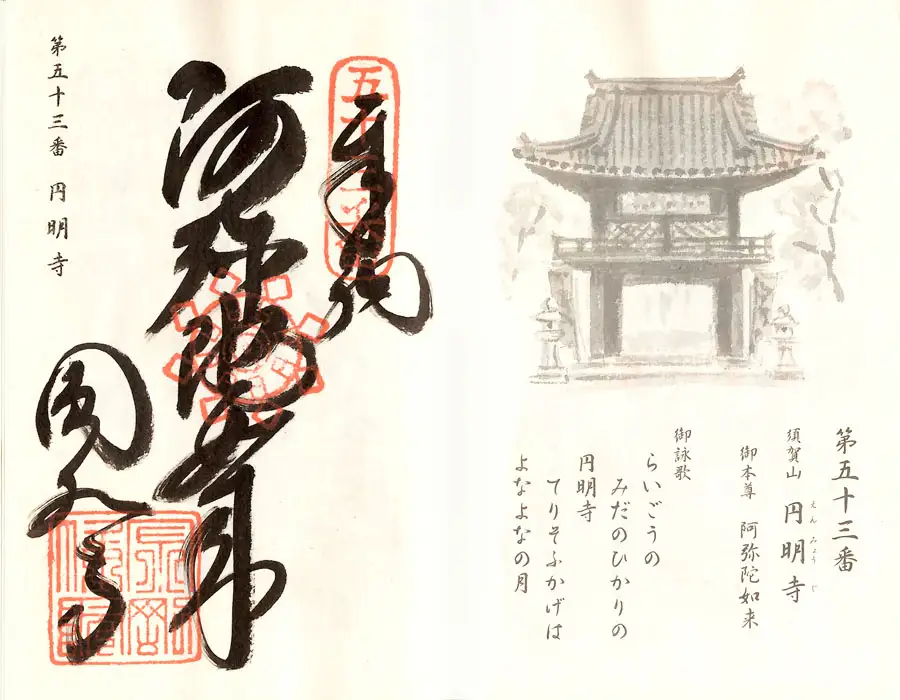 第五十三番
須賀山 円明寺
えんみょうじ
御本尊 阿弥陀如来
御詠歌
らいごうの
みだのひかりの
円明寺
てりそふかげは
よなよなの月
奉納
阿弥陀如来
圓明寺
第五十三番 円明寺